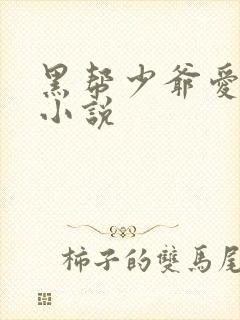 黑帮少爷愛
小說
柿子的雙馬尾